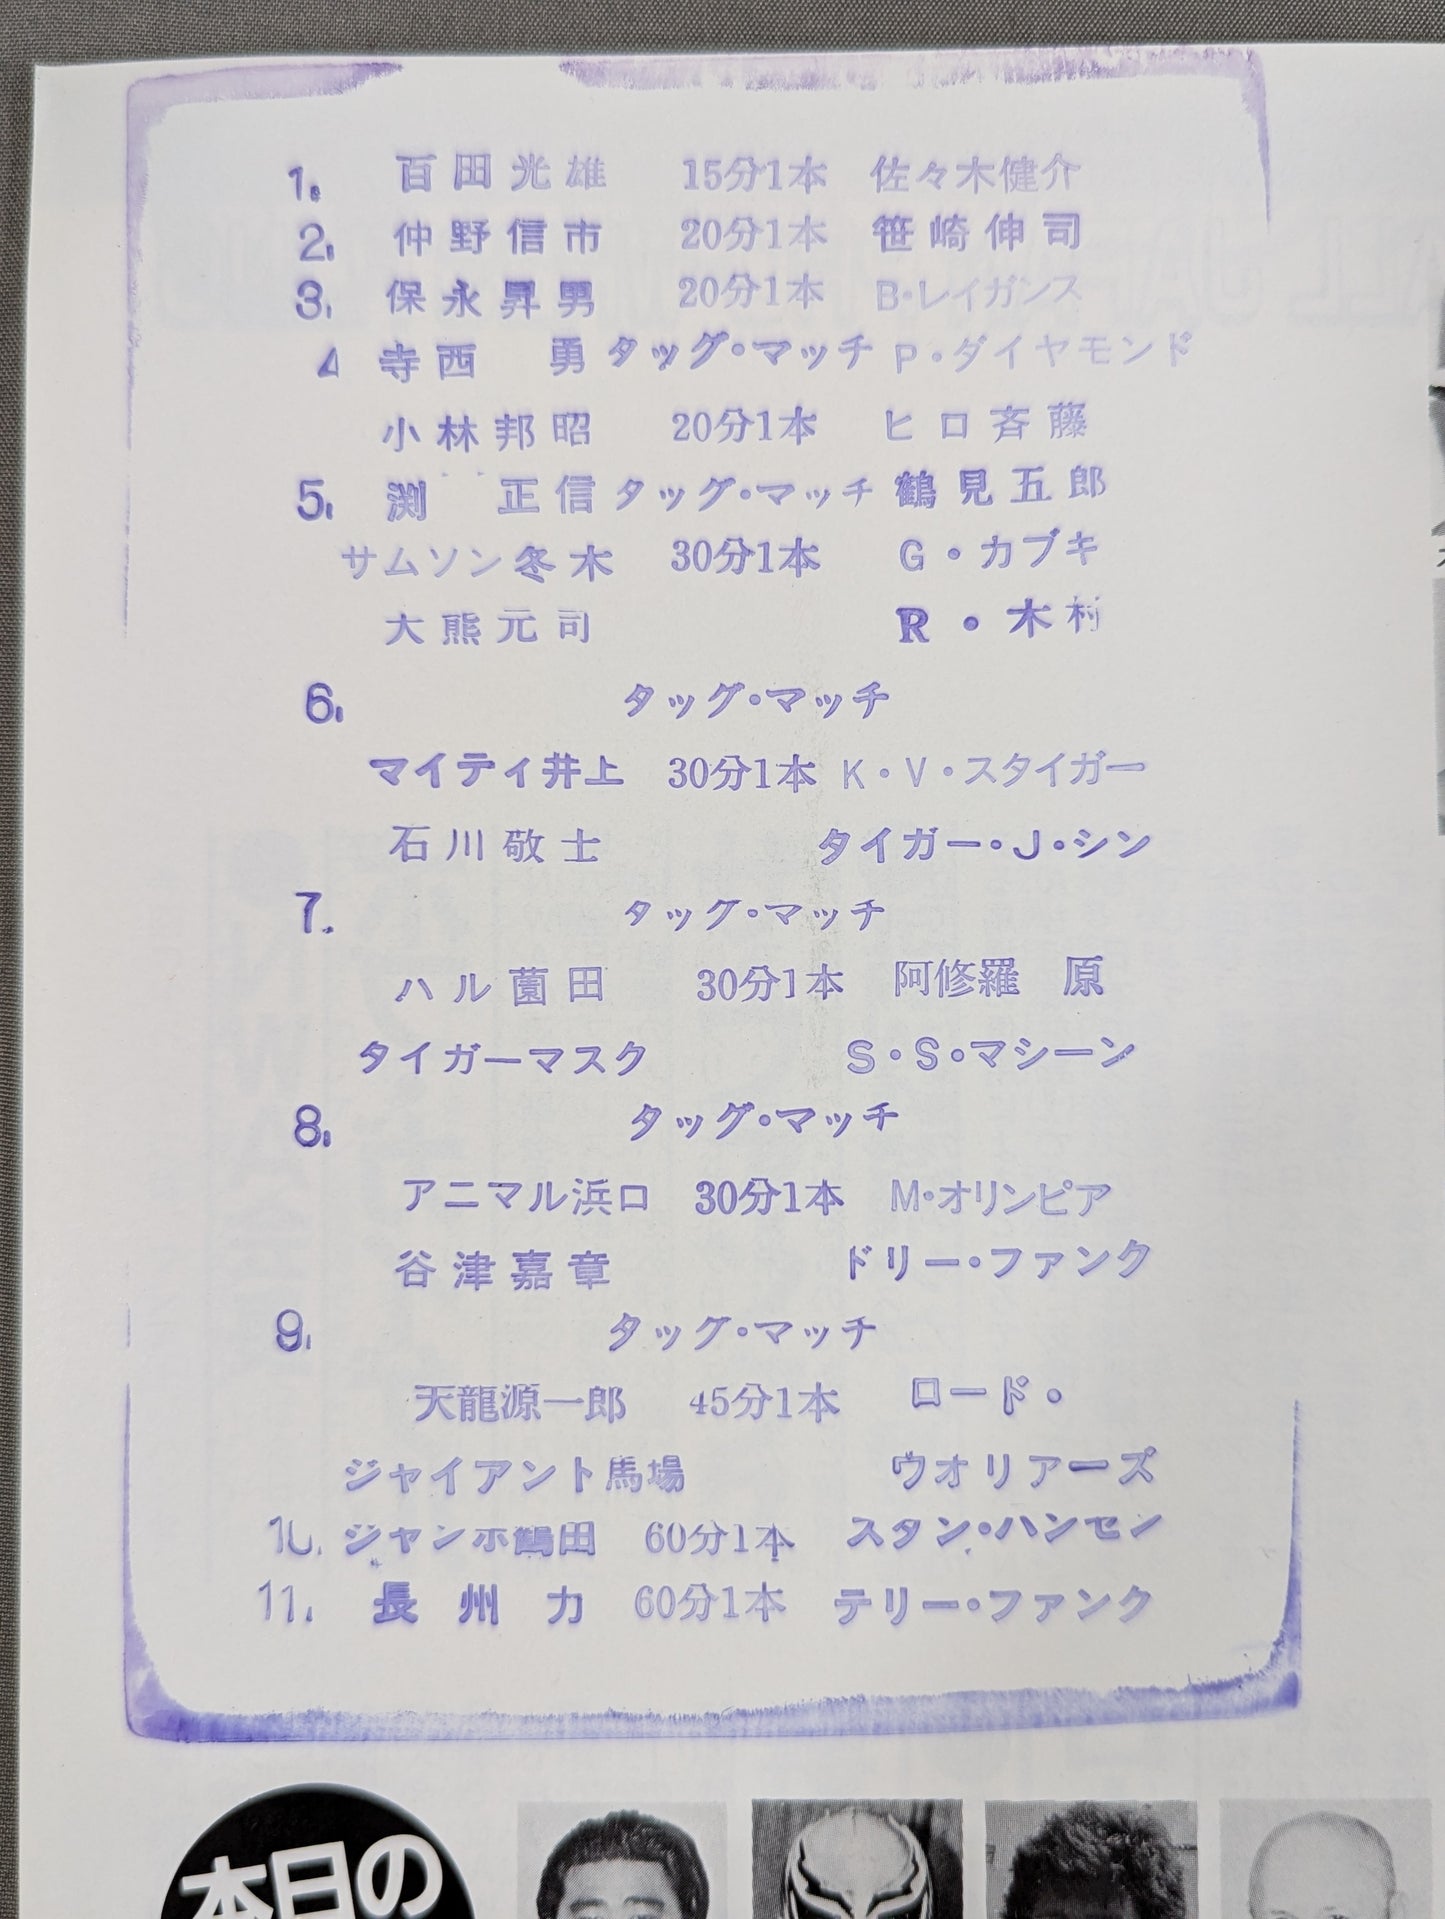 1. 百田光雄 15分1本 佐々木健介
2. 仲野信市 20分1本 笹崎伸司
3. 保永昇男 20分1本 B・レイガンス
4 寺西 勇 タッグ・マッチ P・ダイヤモンド
小林邦昭 20分1本 ヒロ斉藤
5. 渕 正信 タッグ・マッチ 鶴見五郎
サムソン冬木 30分1本 G・カブキ
大熊元司 R・木村
6. タッグ・マッチ
マイティ井上 30分1本 K・V・スタイガー
石川敬士 タイガー・J・シン
7. タッグ・マッチ
ハル薗田 30分1本 阿修羅 原
タイガーマスク S・S・マシーン
8. タッグ・マッチ
アニマル浜口 30分1本 M・オリンピア
谷津嘉章 ドリー・ファンク
9. タッグ・マッチ
天龍源一郎 45分1本 ロード・
ジャイアント馬場 ウオリアーズ
10. ジャンボ鶴田 60分1本 スタン・ハンセン
11. 長州力 60分1本 テリー・ファンク
本日の